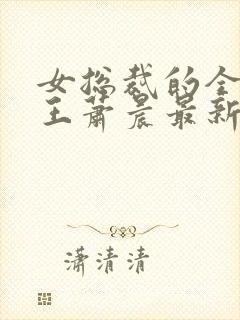 女总裁的全
王萧晨最新
潇清清